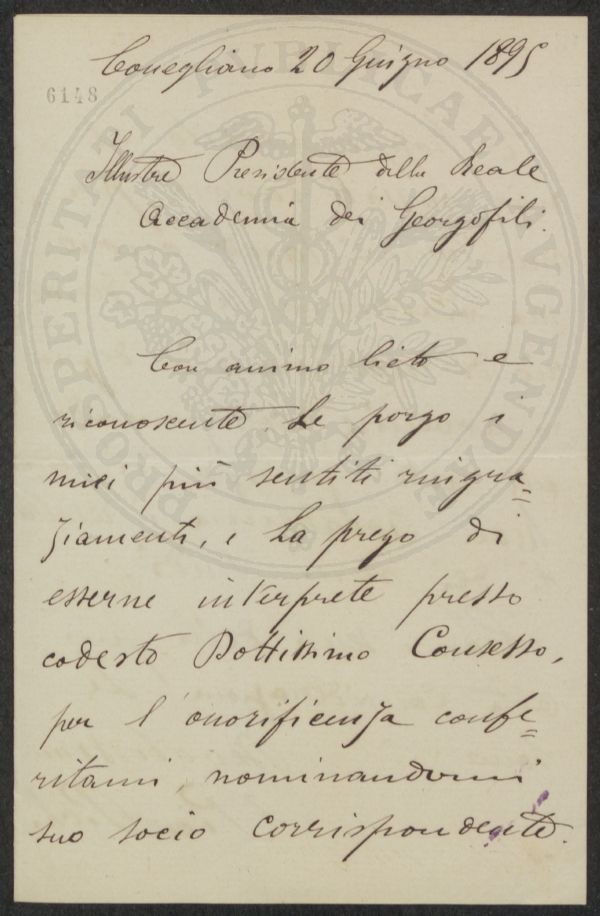 Conegliano 20 Giugno 1895
6148
Illustre Presidente della Reale
Accademia dei Georgofili.
Con animo lieto e
riconoscente Le porgo i
miei più sentiti ringra=
ziamenti, e La prego di
esserne interprete presso
codesto Dottissimo Consesso,
per l'onorificenza confe=
ritami nominandomi
suo socio corrispondente.
PROSPERITATI PUBLICAE AVGENDAE